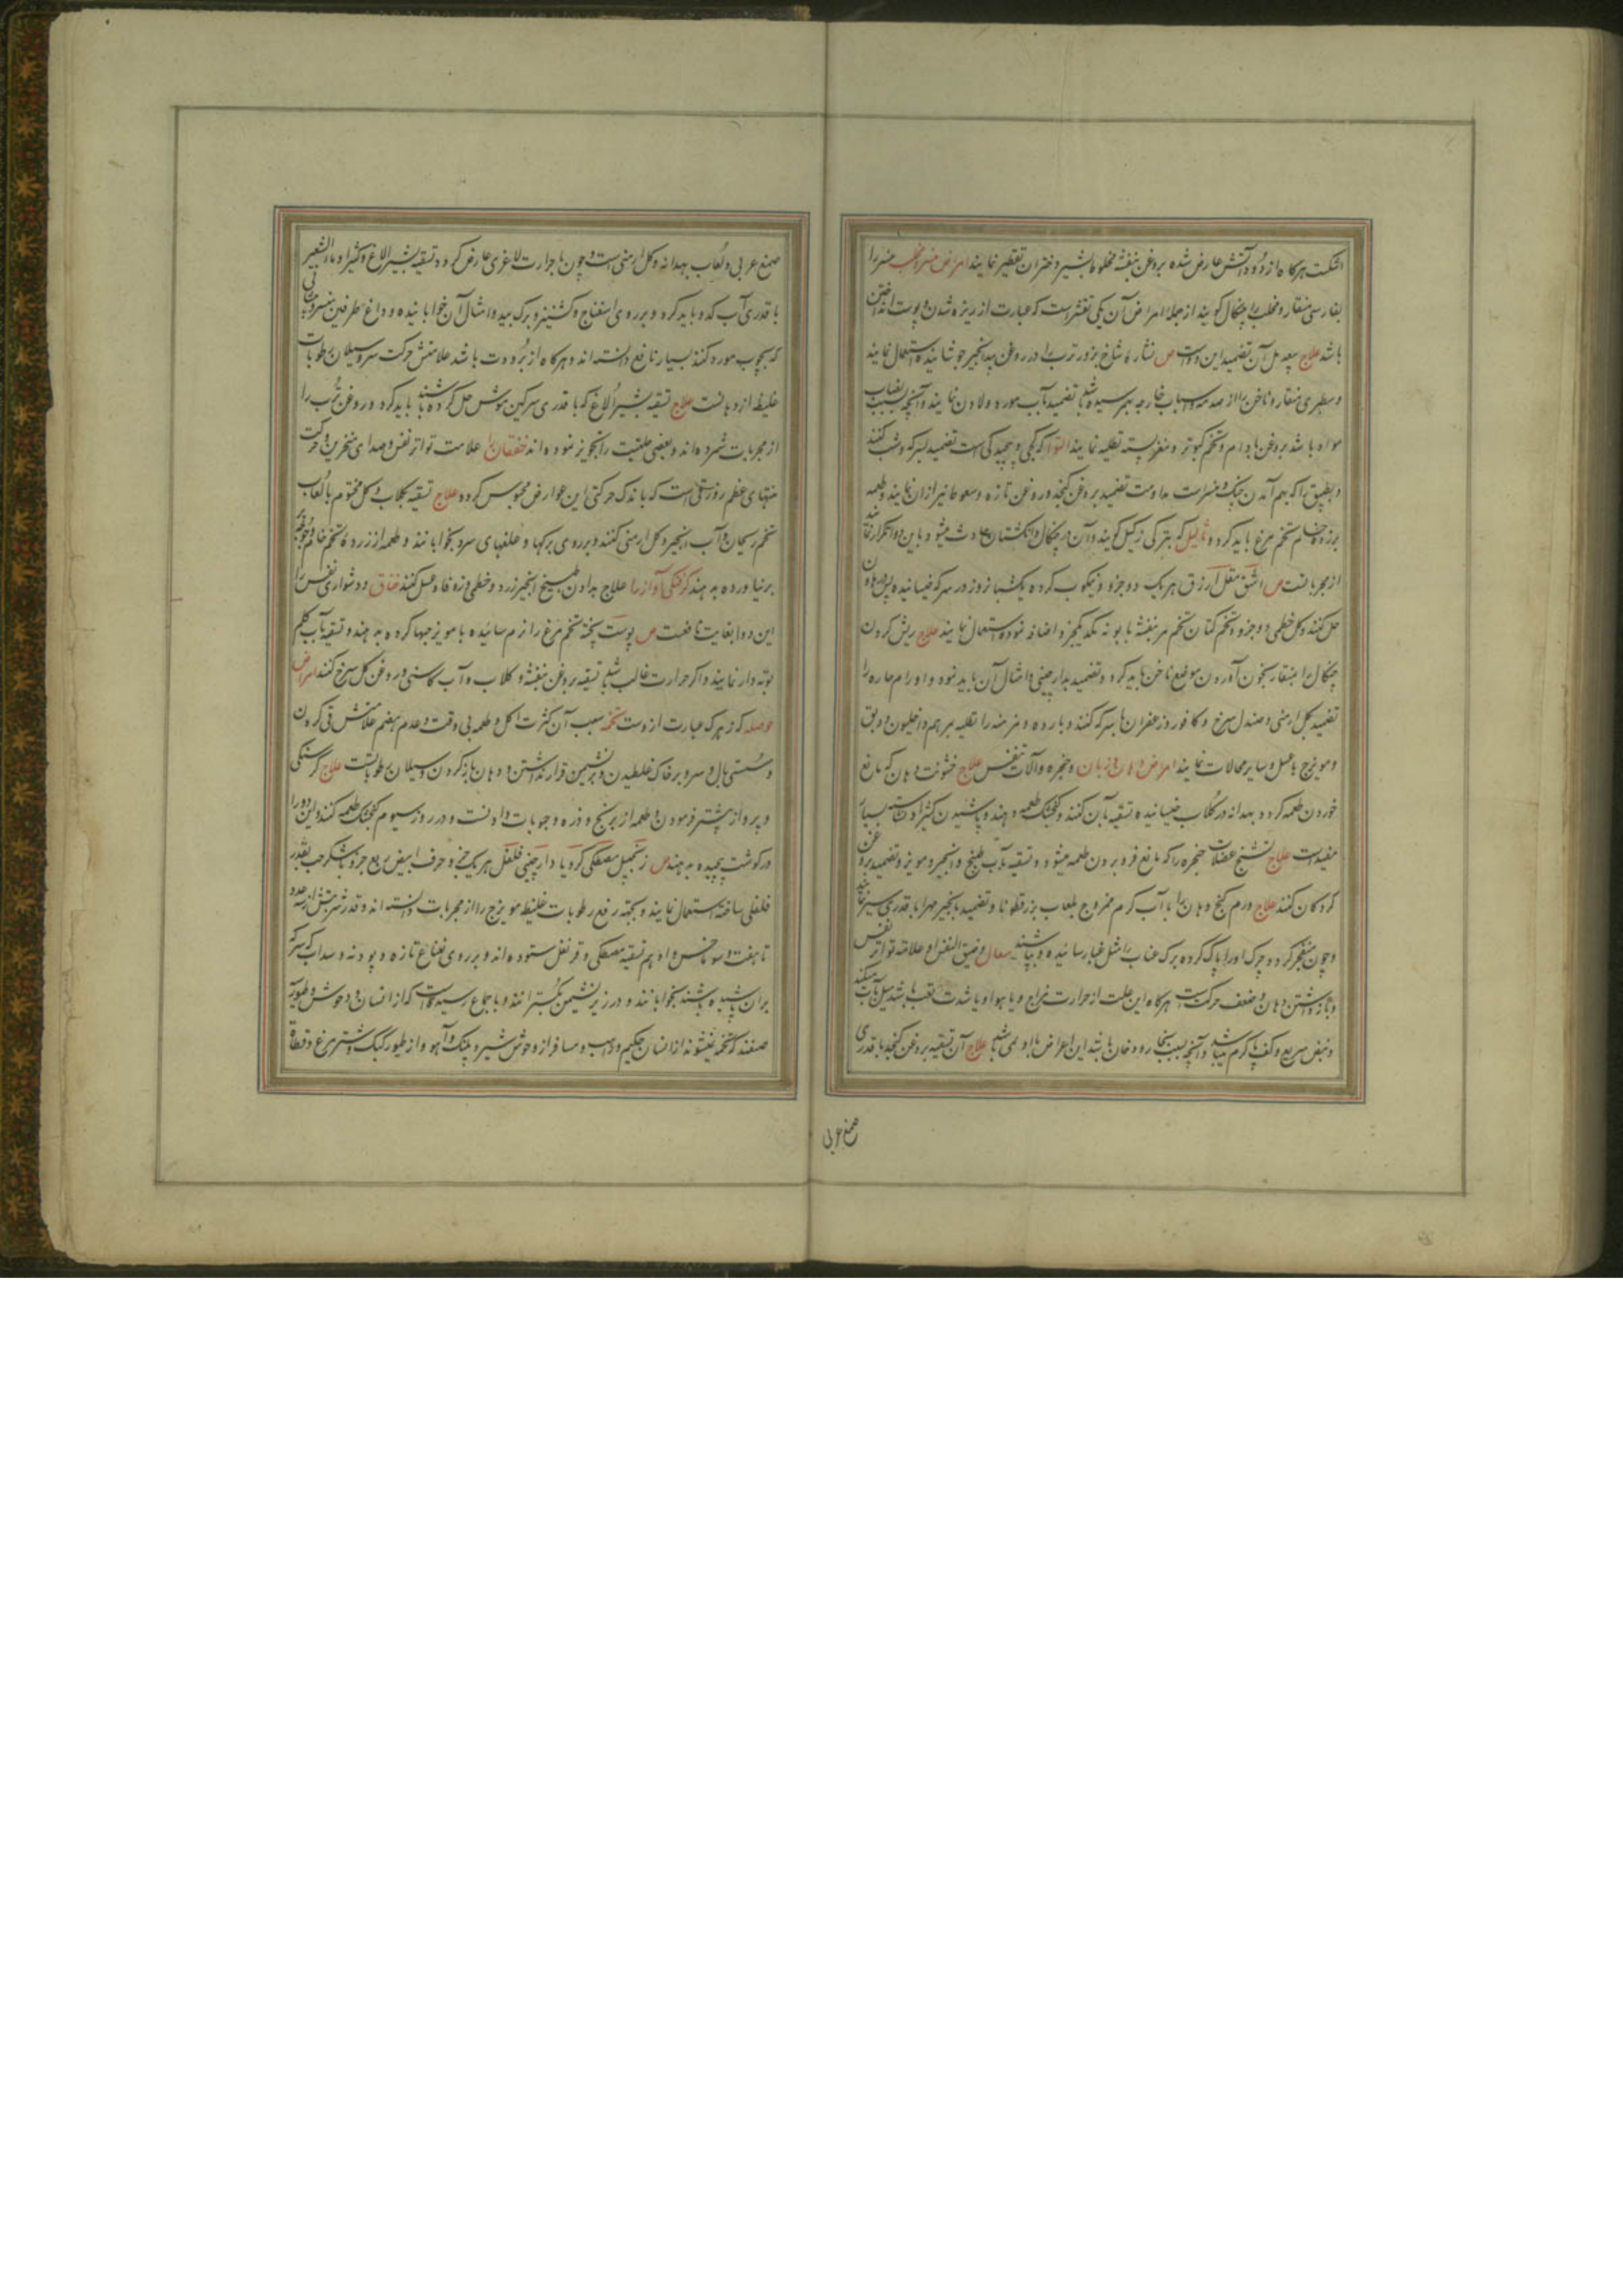 اشکست هرگاه از دود و آتش عارض شده بروغن بنفشه مخلوط بشیر دختران تقطیر نمایند امراض منسر و مخلب منسر را
بفارسی منقار و مخلب را چنگال گویند از جمله امراض آن یکی تقشر است که عبارت از ریزه شدن و پوست انداختن
باشد علاج بعد آن تضمید این دواست ص نشاره شاخ بز و ترب را در روغن بیدانجیر جوشانیده استعمال نمایند
و سطبری منقار و ناخن را از صدمه و اسباب خارجه بهم رسیده باشد تضمید بآب مورد و لادن نمایند و آنچه بسبب انصباب
مواد باشد بروغن بادام و تخم کبوتر و مغز پسته تطلیه نمایند التوا که کجی و پیچیدگی است تضمید بسرکه و شب کنند
و بطبیق که بهم آمدن چنگ و منسر است مداومت تضمید بروغن کنجد و روغن تازه و سعوط نیز از آن نمایند و طعمه
بزرده خام تخم مرغ باید کرد و ثآلیل که بترکی زگیل گویند و آن در چنگال و انگشتان حادث میشود باین دوا تکرار نمایند
از مجرباتست ص اشق مقل ازرق هر یک دو جزو و نیکوب کرده یکشبانروز در سرکه خیسانیده پس در هاون
حل کنند و گل خطمی دو جزو و تخم کتان تخم مر بنفشه بابونه نمک یکجزو اضافه نموده استعمال نمایند علاج ریش کردن
چنگال را بمنقار بخون آوردن موضع ناخن باید کرد و تضمید بدارچینی و امثال آن باید نمود و اورام حاره را
تضمید بگل ارمنی و صندل سرخ و کافور و زعفران با سرکه کنند و بارده و مزمنه را تطلیه بمرهم داخلیون و دبق
و مویزج با عسل و سایر محللات نمایند امراض دهان و زبان و حنجره و آلات تنفس علاج خشونت دهان که مانع
خوردن طعمه گردد بهدانه در گلاب خیسانیده تسقیه بآن کنند و گنجشک طعمه دهند و پاشیدن کثیرا و نشاسته بسیار
مفیدست علاج تشنج عضلات حنجره را که مانع فرو بردن طعمه میشود و تسقیه بآب طبیخ و انجیر و مویز و تضمید بروغن
گردکان کنند علاج ورم کنج دهان را با آب گرم ممزوج بلعاب بزرقطونا و تضمید بانجیر مهرا با قدری سیر نمایند
و چون منفجر گردد چرک او را پاک کرده برگ عناب را مثل غبار سائیده و بپاشند سعال و ضیق النفس او علامته تواتر نفس
و باز داشتن دهان و ضعف حرکت است هرگاه این علت از حرارت مزاج و یا هوا و یا شدت تعب باشد میل بآب میکند
و نبض سریع و کف پا گرم میباشد و آنچه بسبب بخار و دخان باشد این اعراض با او نمی باشد علاج آن تسقیه بروغن کنجد با قدری
صمغ عربی
صمغ عربی و لعاب بهدانه و گل ارمنی است و چون با حرارت لاغری عارض گردد تسقیه بشیر الاغ و کثیرا و ماءالشعیر
با قدری آب کدو باید کرد و بر روی اسفناج و کشنیز و برگ بید و امثال آن خوابانیده و داغ طرفین منسر
که بچوب مورد کنند بسیار نافع دانسته اند و هرگاه از برودت باشد علامتش حرکت سر و سیلان رطوبات
غلیظ از دهانست علاج تسقیه بشیر الاغ که با قدری سرگین موش حل کرده باشند باید کرد و روغن ترب را
از مجربات شمرده اند و بعضی حلتیت را تجویز نموده اند خفقان را علامت تواتر نفس و صدای منخرین و حرکت
منتهای عظم زور قلی است که باندک حرکتی این عوارض محسوس گردد علاج تسقیه بگلاب و گل مختوم با لعاب
تخم ریحان و آب انجیر و گل ارمنی کنند و بر روی برگها و علفهای سرد بخوابانند و طعمه از زرده تخم خام و جوجه
پر نیاورده بدهند گرفتگی آواز را علاج بدادن طبیخ انجیر زرد و خطمی و زوفا و عسل کنند خناق و دشواری نفس را
این دوا بغایت نافعست ص پوست پخته تخم مرغ را نرم سائیده با مویز حبها کرده بدهند و تسقیه بآب کلم
نوبه دار نمایند و اگر حرارت غالب باشد تسقیه بروغن بنفشه و گلاب و آب کاسنی و روغن گل سرخ کنند امراض
حوصله که زهرک عبارت ازوست تخمه سبب آن کثرت اکل و طعمه بی وقت و عدم هضم علامتش قی کردن
و سستی بال و سر و بر خاک غلطیدن و بر نشیمن قرار نداشتن و دهان باز کردن و سیلان رطوباتست علاج گرسنگی
و پرواز پیشتر فرمودن و طعمه از برنج و ذره و حبوبات دادنست و در روز سیوم گنجشک طعمه کنند و این دوا را
در گوشت پیچیده بدهند ص زنجبیل مصطکی کرویا دارچینی فلفل هر یک جزو حرف ابیض ربع جزو با شکر حب بقدر
فلفلی ساخته استعمال نمایند و بجهة رفع رطوبات غلیظ مویزج را از مجربات دانسته اند و قدر شربتش از سه عدد
تا هفت و سوناخس واد هم تسقیه مصطکی و قرنفل ستوده اند و بر روی نعناع تازه و پودنه و سداب که سرکه
بر آن پاشیده باشند بخوابانند و در زیر نشیمن بگسترانند و باجماع رسیده است که از انسان و وحوش و طیور
صنفند که تخمه نمیشوند از انسان حکیم و راهب و مسافر از وحوش شیر و پلنگ و آهو و از طیور کبک و شترمرغ و قطاة